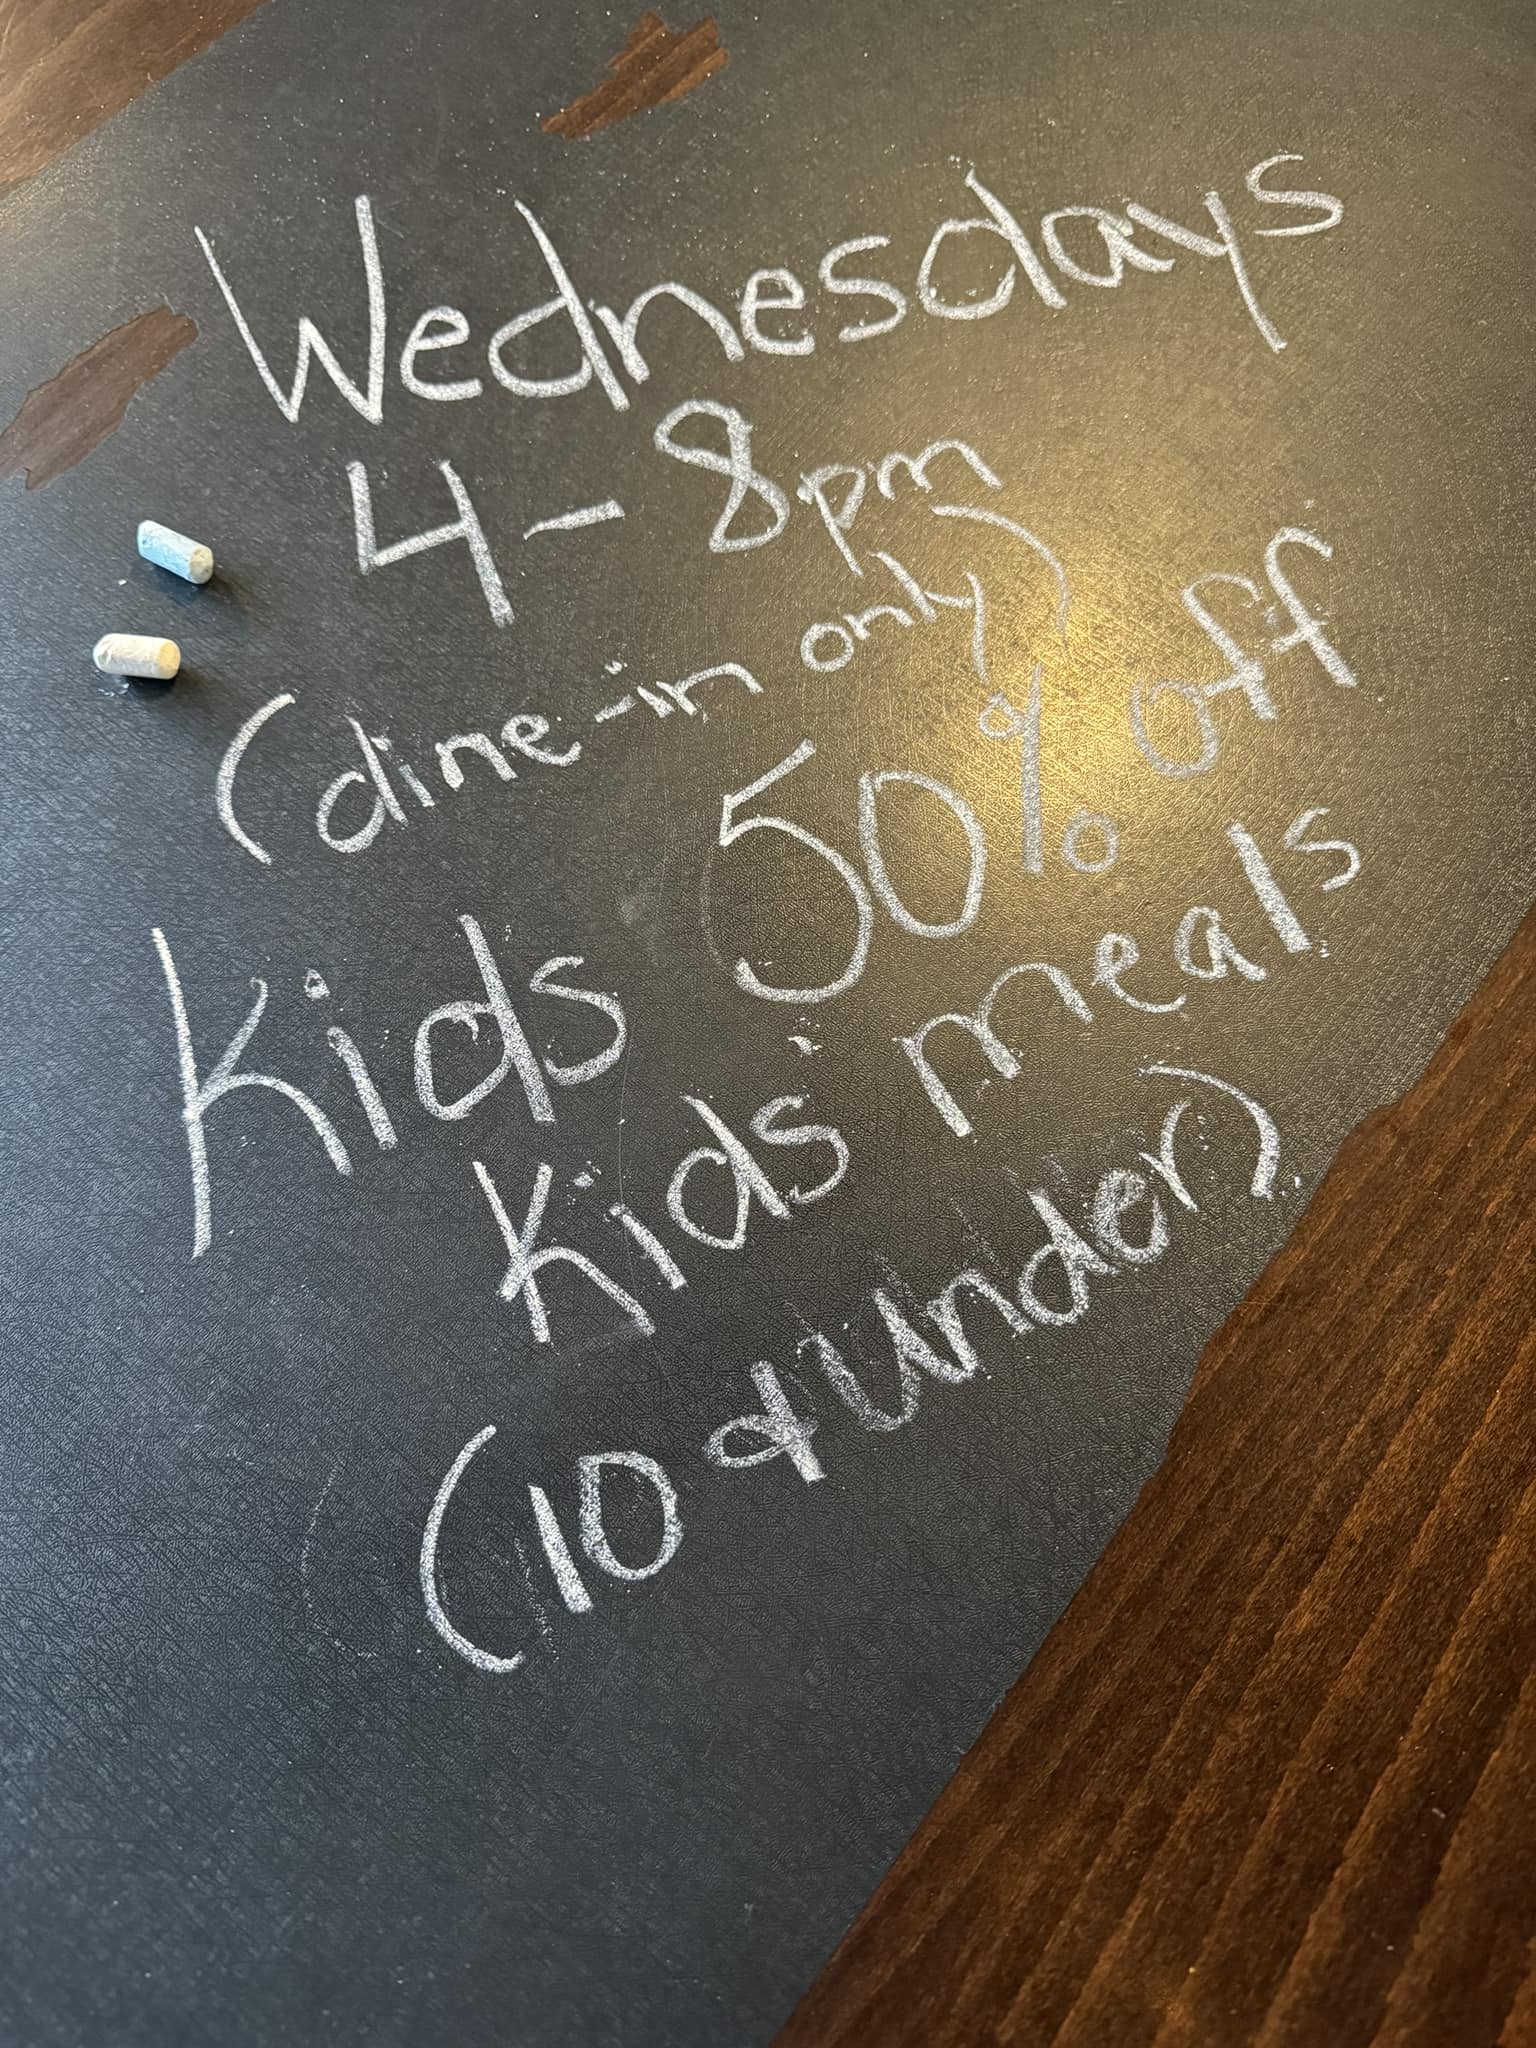 Wednesdays
4-8pm
(dine-in only)
Kids 50% off
Kids' meals
(10 & under)